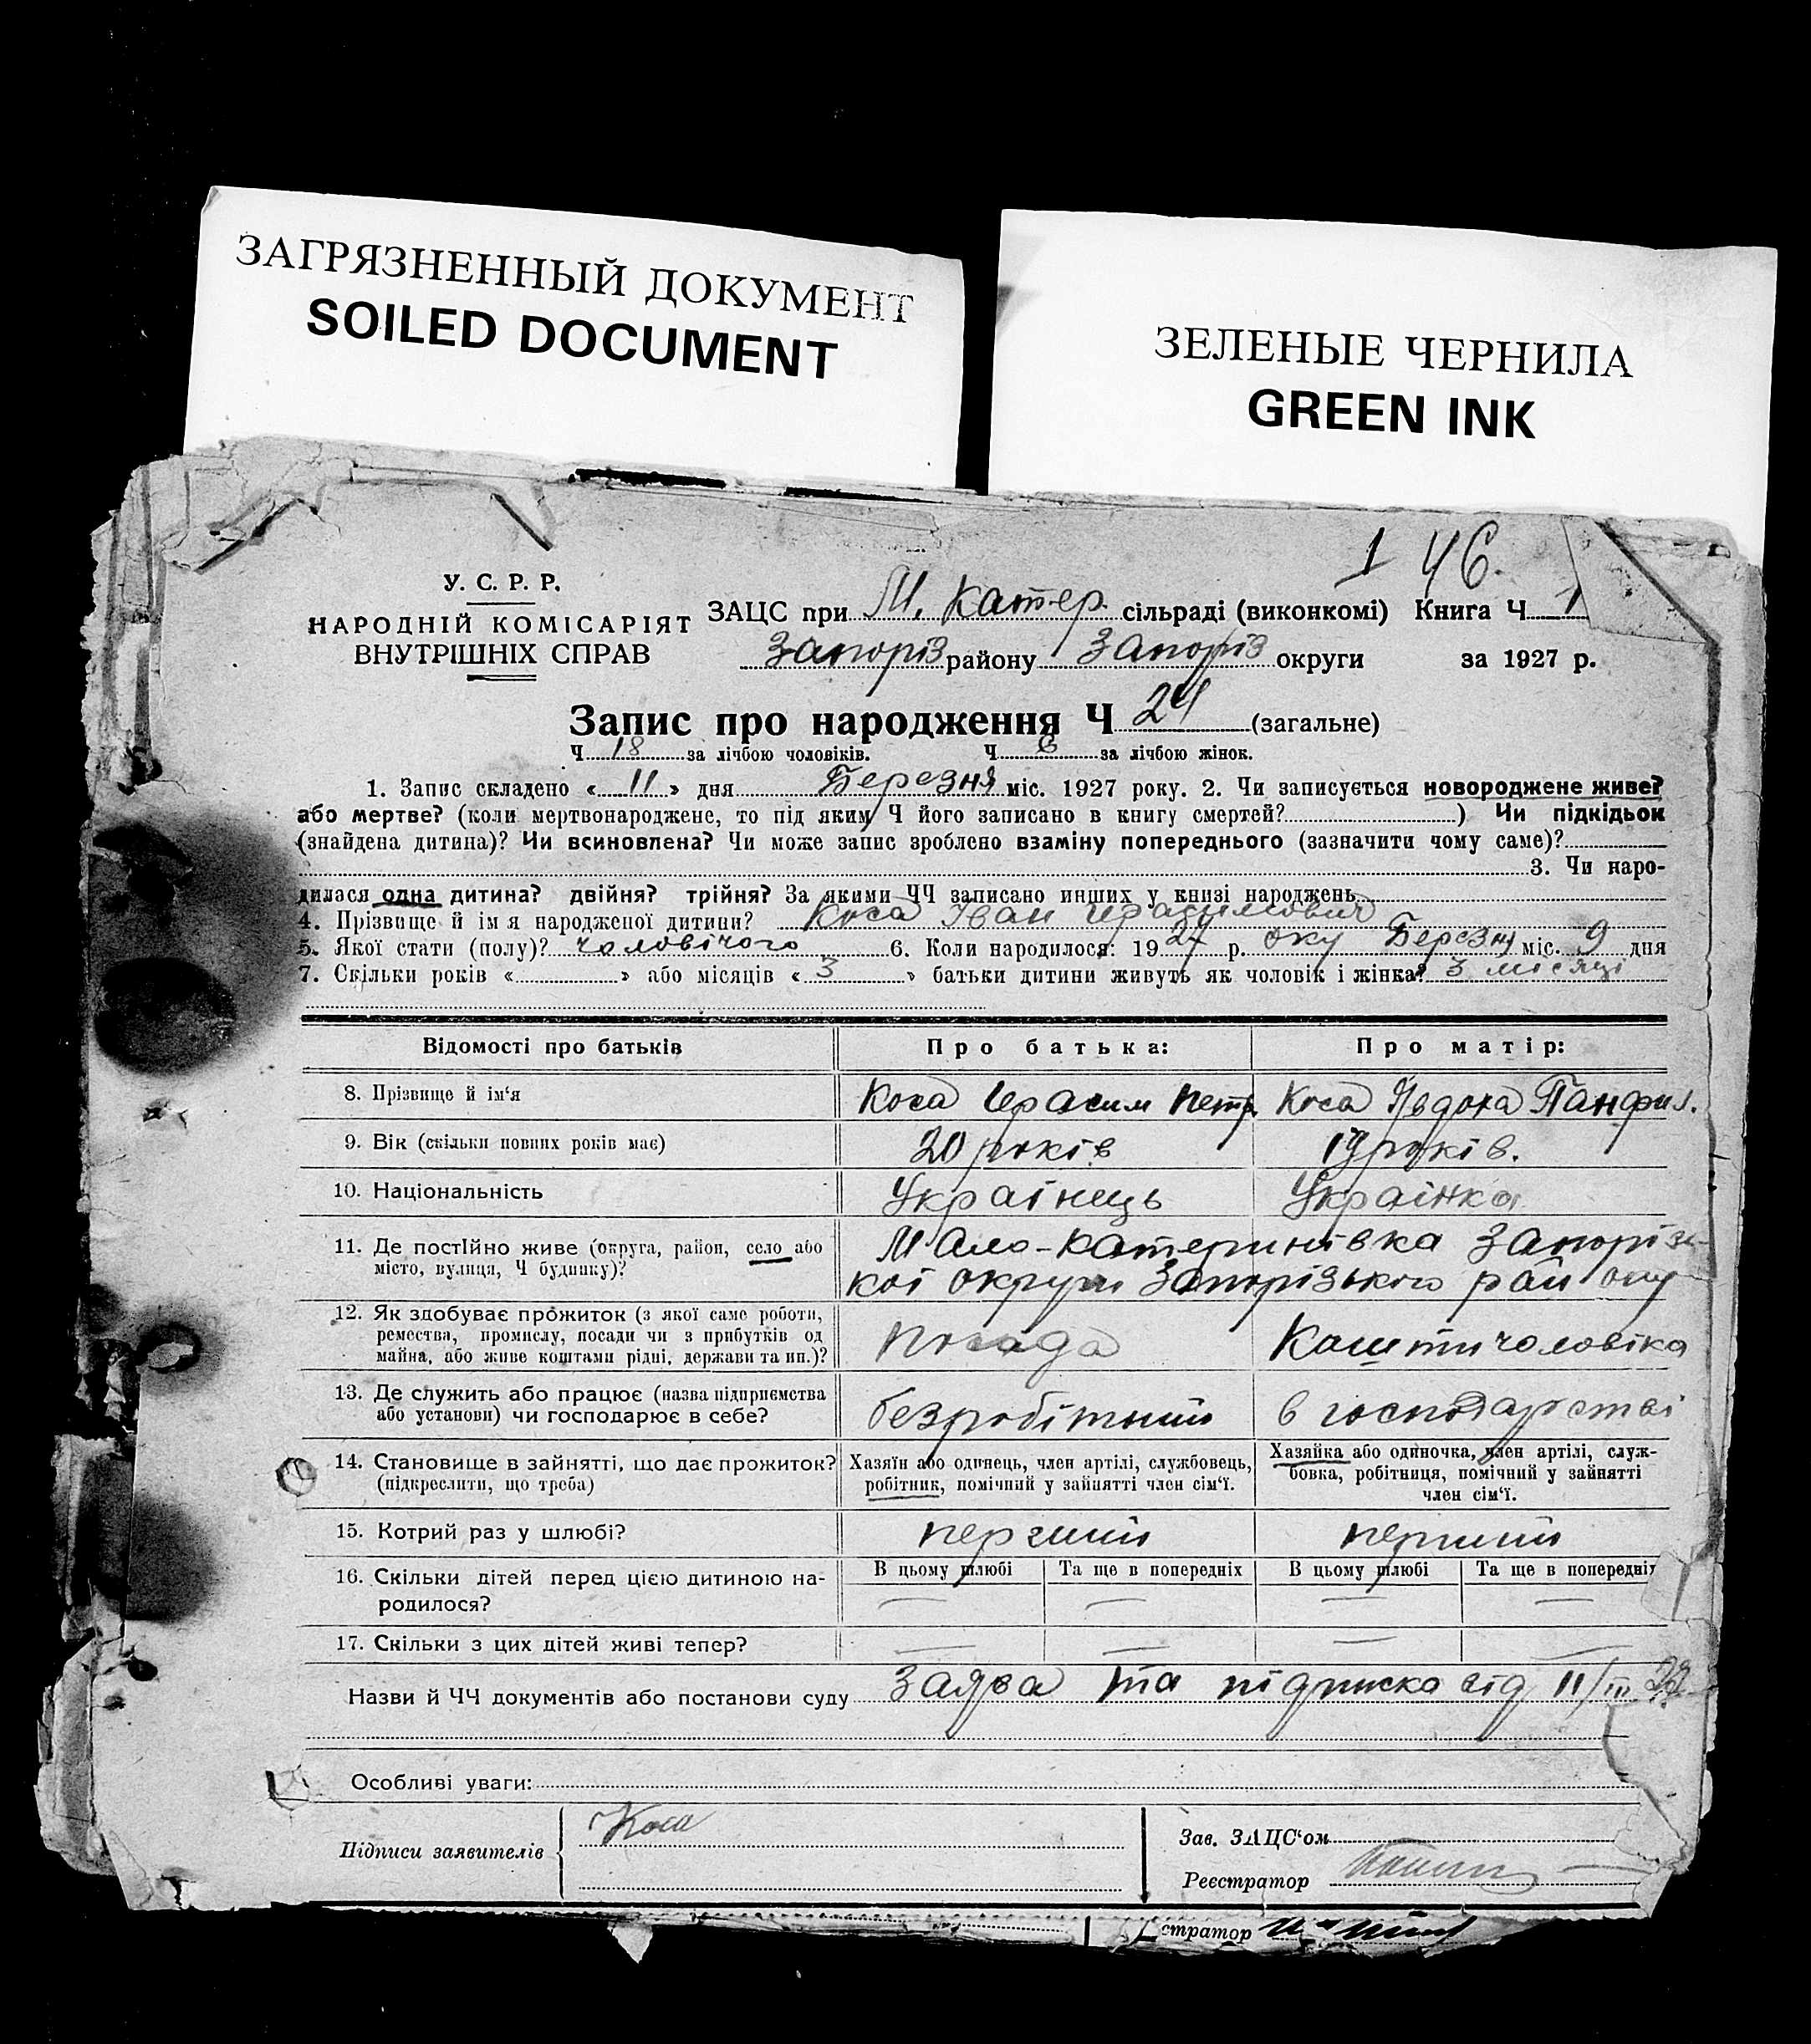 ЗАГРЯЗНЕННЫЙ ДОКУМЕНТ
SOILED DOCUMENT
ЗЕЛЕНЫЕ ЧЕРНИЛА
GREEN INK
1 46.
У. С. Р. Р.
НАРОДНІЙ КОМІСАРІЯТ
ВНУТРІШНІХ СПРАВ
ЗАЦС при М. Катер. сільраді (виконкомі) Книга Ч 1
Запоріз району Запоріз округи за 1927 р.
Запис про народження Ч 24 (загальне)
Ч 18 за лічбою чоловіків. Ч 6 за лічбою жінок.
1. Запис складено « 11 » дня Березня міс. 1927 року. 2. Чи записується новороджене живе?
або мертве? (коли мертвонароджене, то під яким Ч його записано в книгу смертей? ) Чи підкідьок
(знайдена дитина)? Чи всиновлена? Чи може запис зроблено взаміну попереднього (зазначити чому саме)?
3. Чи наро-
дилася одна дитина? двійня? трійня? За якими ЧЧ записано инших у книзі народжень
4. Прізвище й імя народженої дитини? Коса Іван Герасимович
5. Якої стати (полу)? чоловічого 6. Коли народилося: 1927 р. оку Березня міс. 9 дня
7. Скільки років « » або місяців « 3 » батьки дитини живуть як чоловік і жінка? 3 місяці
Відомості про батьків Про батька: Про матір:
8. Прізвище й ім‘я Коса Герасим Петр. Коса Явдоха Панфил.
9. Вік (скільки повних років має) 20 років 19 років.
10. Національність Українець Українка
11. Де постІйно живе (округа, район, село або
місто, вулиця, Ч будинку)?
Мало-Катеринівка Запорізь-
кої округи Запорізького району
12. Як здобуває прожиток (з якої саме роботи,
ремества, промислу, посади чи з прибутків од
майна, або живе коштами рідні, держави та ин.)?
Посада Кошти чоловіка
13. Де служить або працює (назва підприємства
або установи) чи господарює в себе?
безробітний в господарстві
14. Становище в зайнятті, що дає прожиток?
(підкреслити, що треба)
Хазяїн або одинець, член артілі, службовець,
робітник, помічний у зайнятті член сім‘ї.
Хазяйка або одиночка, член артілі, служ-
бовка, робітниця, помічний у зайнятті
член сім‘ї.
15. Котрий раз у шлюбі? перший перший
16. Скільки дітей перед цією дитиною на-
родилося?
В цьому шлюбі Та ще в попередніх В цьому шлюбі Та ще в попередніх
— — — —
17. Скільки з цих дітей живі тепер? — — — —
Назви й ЧЧ документів або постанови суду Заява та підписка від 11/III 27
Особливі уваги:
Підписи заявителів Коса
Зав. ЗАЦС‘ом
Реєстратор
стратор